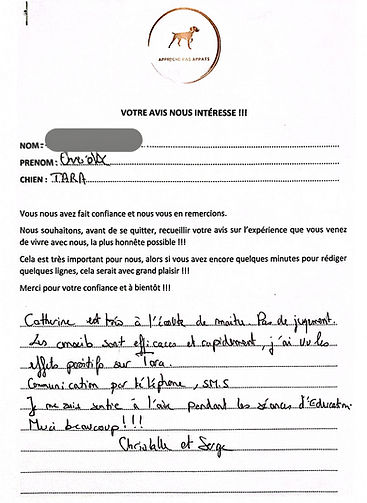 APPROCHE PAS APPATS
VOTRE AVIS NOUS INTÉRESSE !!!
NOM :
PRENOM : Christelle
CHIEN : TARA
Vous nous avez fait confiance et nous vous en remercions.
Nous souhaitons, avant de se quitter, recueillir votre avis sur l'expérience que vous venez
de vivre avec nous, la plus honnête possible !!!
Cela est très important pour nous, alors si vous avez encore quelques minutes pour rédiger
quelques lignes, cela serait avec grand plaisir !!!
Merci pour votre confiance et à bientôt !!!
Catherine est très à l'écoute du maître. Pas de jugement.
Les conseils sont efficaces et rapidement, j'ai vu les
effets positifs sur Tara.
Communication par téléphone, SMS
Je me suis sentie à l'aise pendant les séances d'Education.
Merci beaucoup !!!
Christelle et Serge